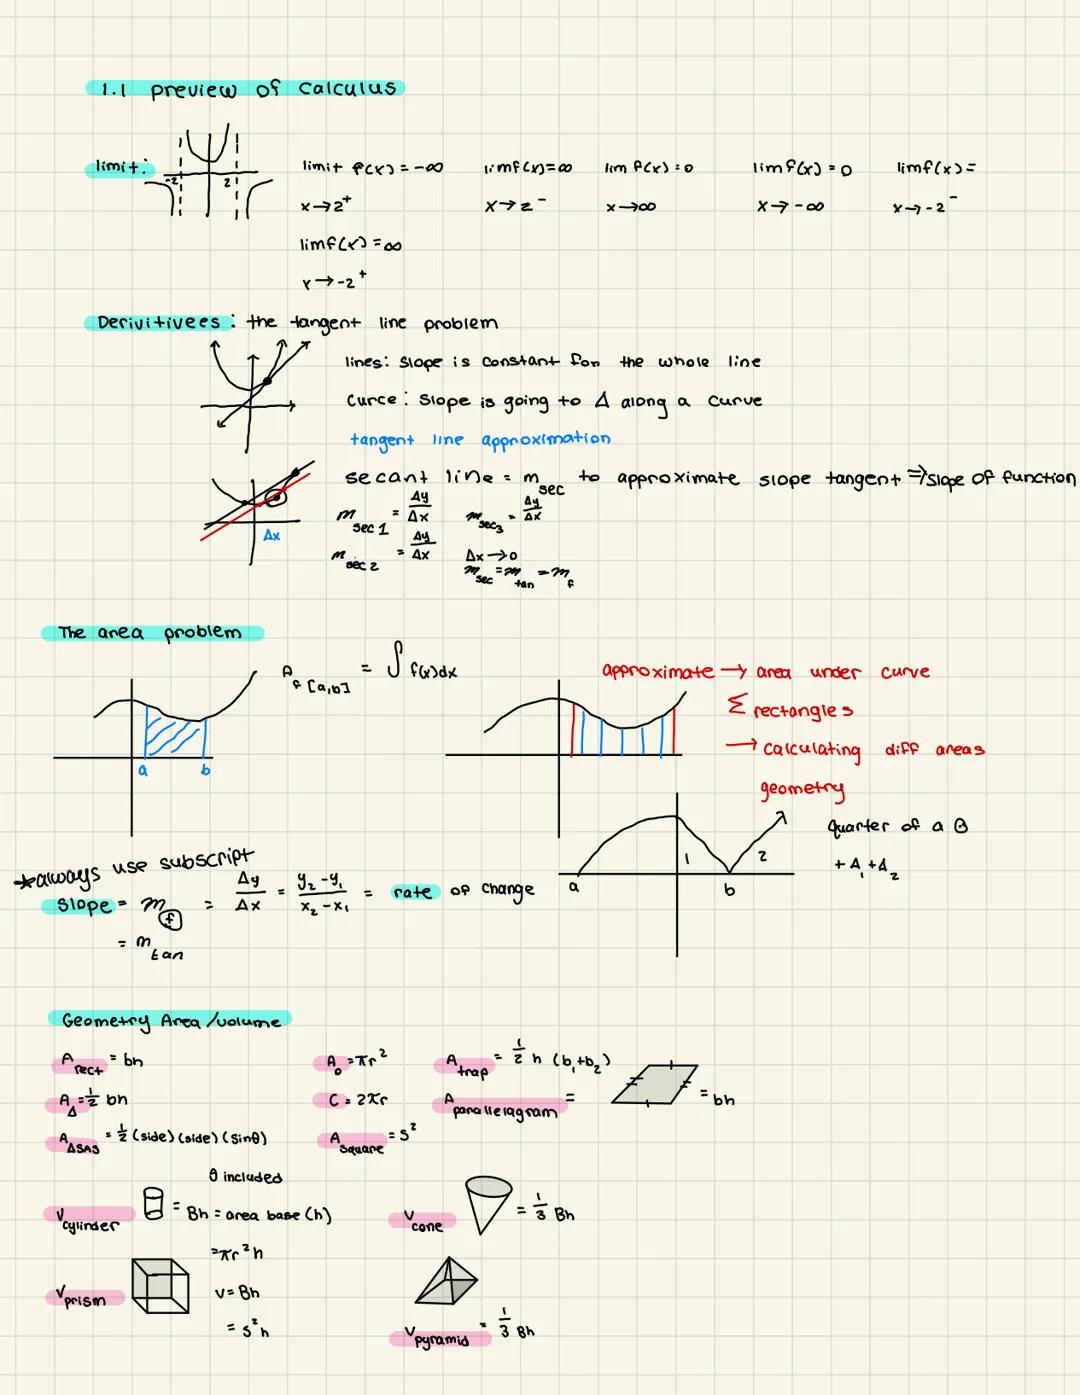 1.1 preview of calculus
limit:
-2 2
limit f(x) = -∞ limf(x)=∞ lim f(x) = 0 limf(x) = 0 limf(x) =
x→2⁺ x→2⁻ x→∞ x→-∞ x→-2⁻
limf(x) = ∞
x→-2⁺
Derivitivees: the tangent line problem
lines: slope is constant for the whole line
curce: slope is going to Δ along a curve
tangent line approximation
secant line = m_sec to approximate slope tangent ⇒ slope of function
Δx
m_sec1 = Δy/Δx m_sec3 = Δy/Δx
m_sec2 = Δy/Δx Δx→0
m_sec = m_tan = m_f
The area problem
A_f[a,b] = ∫ f(x)dx
a b
approximate → area under curve
Σ rectangles
→ calculating diff areas
geometry
a 1 b 2
quarter of a
+ A₁ + A₂
*always use subscript
slope = m_f = Δy/Δx = y₂-y₁/x₂-x₁ = rate of change
= m_tan
Geometry Area/volume
A_rect = bh A_o = πr² A_trap = 1/2 h (b₁+b₂)
A_Δ = 1/2 bh C = 2πr A_parallelagram = = bh
A_ΔSAS = 1/2 (side)(side)(sinθ) A_square = s²
θ included
V_cylinder = Bh = area base (h) V_cone = 1/3 Bh
=πr²h
V_prism V = Bh
= s²h
V_pyramid = 1/3 Bh